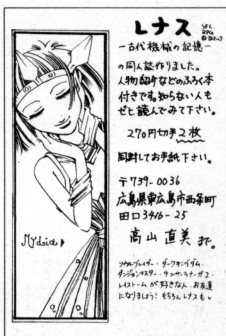 レナス
SFC
RPG
－古代機械の記憶－
の同人誌作りました。
人物紹介などのふろく本
付きです。知らない人も
ぜひ読んでみて下さい。
270円切手2枚
同封してお手紙下さい。
〒739-0036
広島県東広島市西条町
田口3416-25
高山直美 まで。
Mydeia
ソウルブレイダー・ダークキングダム
ダンジョンマスター
が好きな人、お友達
になりましょう！もちろんレナスも